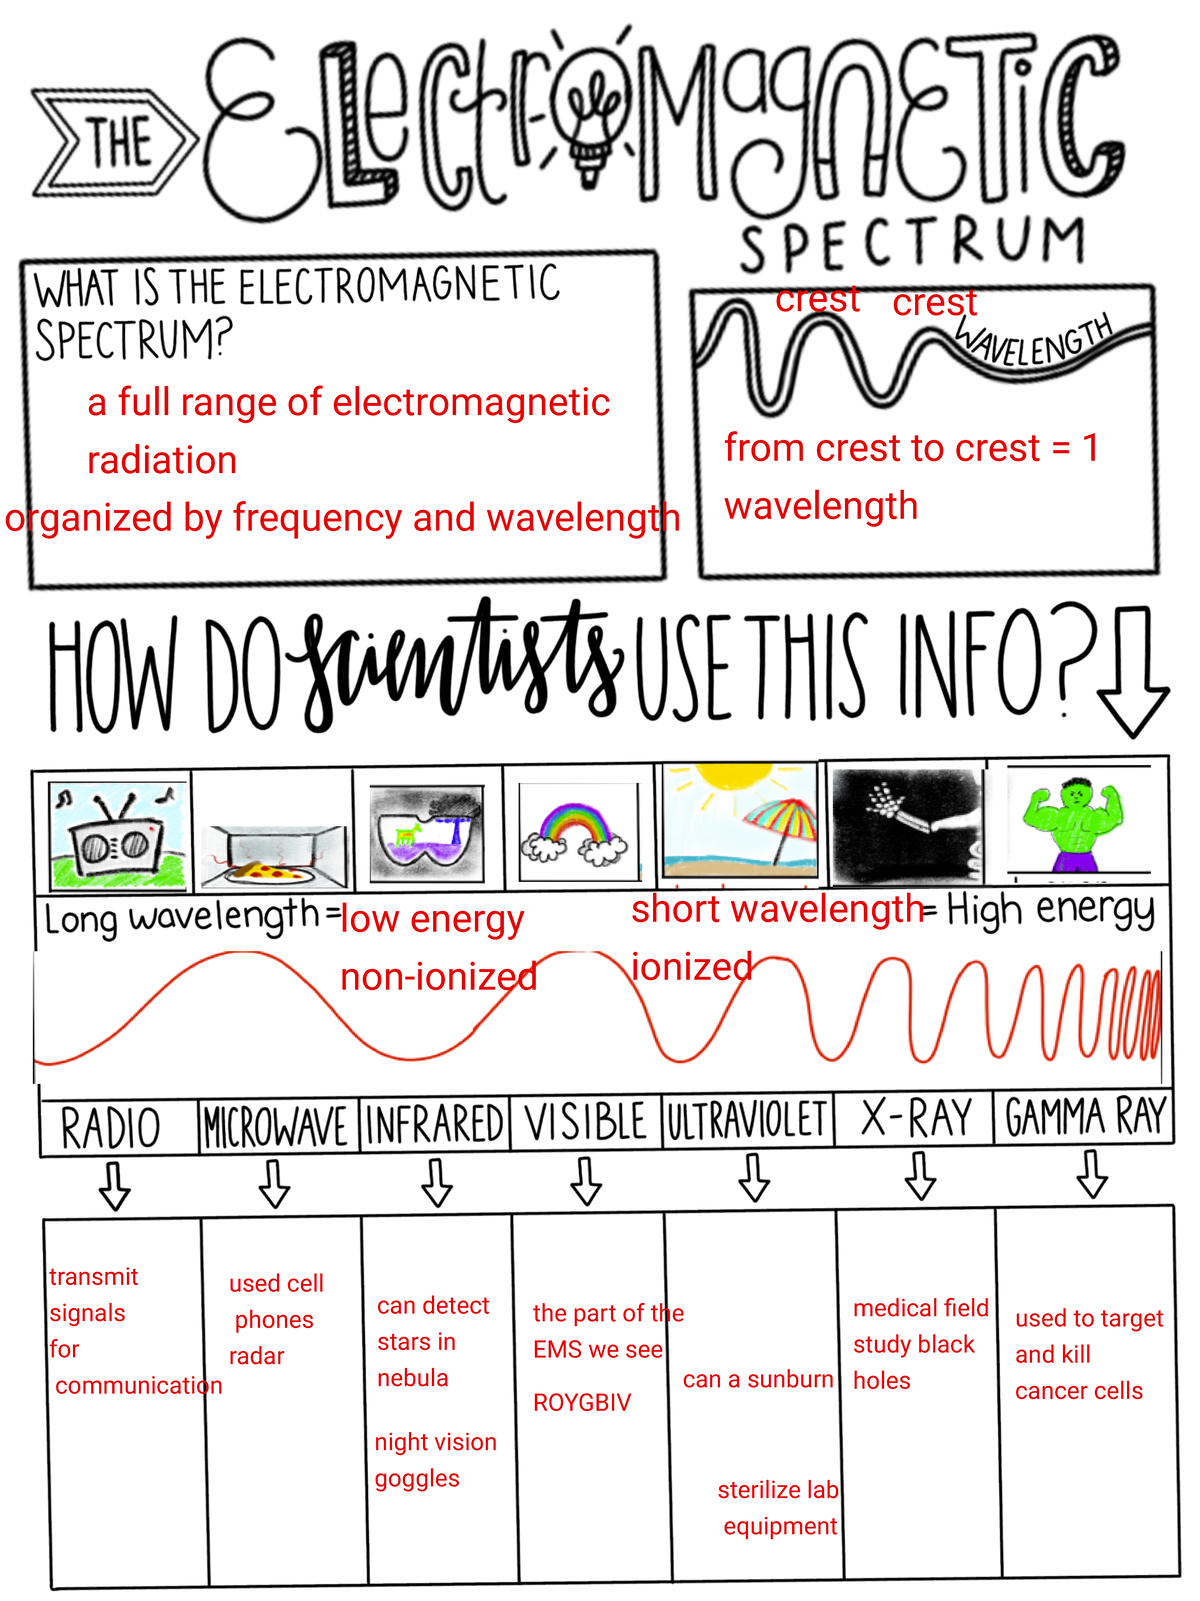 THE ELECTROMAGNETIC
SPECTRUM
WHAT IS THE ELECTROMAGNETIC
SPECTRUM?
a full range of electromagnetic
radiation
organized by frequency and wavelength
crest crest
WAVELENGTH
from crest to crest = 1
wavelength
HOW DO scientists USE THIS INFO?
Long wavelength = low energy
non-ionized
short wavelength = High energy
ionized
RADIO MICROWAVE INFRARED VISIBLE ULTRAVIOLET X-RAY GAMMA RAY
transmit
signals
for
communication
used cell
phones
radar
can detect
stars in
nebula
night vision
goggles
the part of the
EMS we see
ROYGBIV
can a sunburn
sterilize lab
equipment
medical field
study black
holes
used to target
and kill
cancer cells